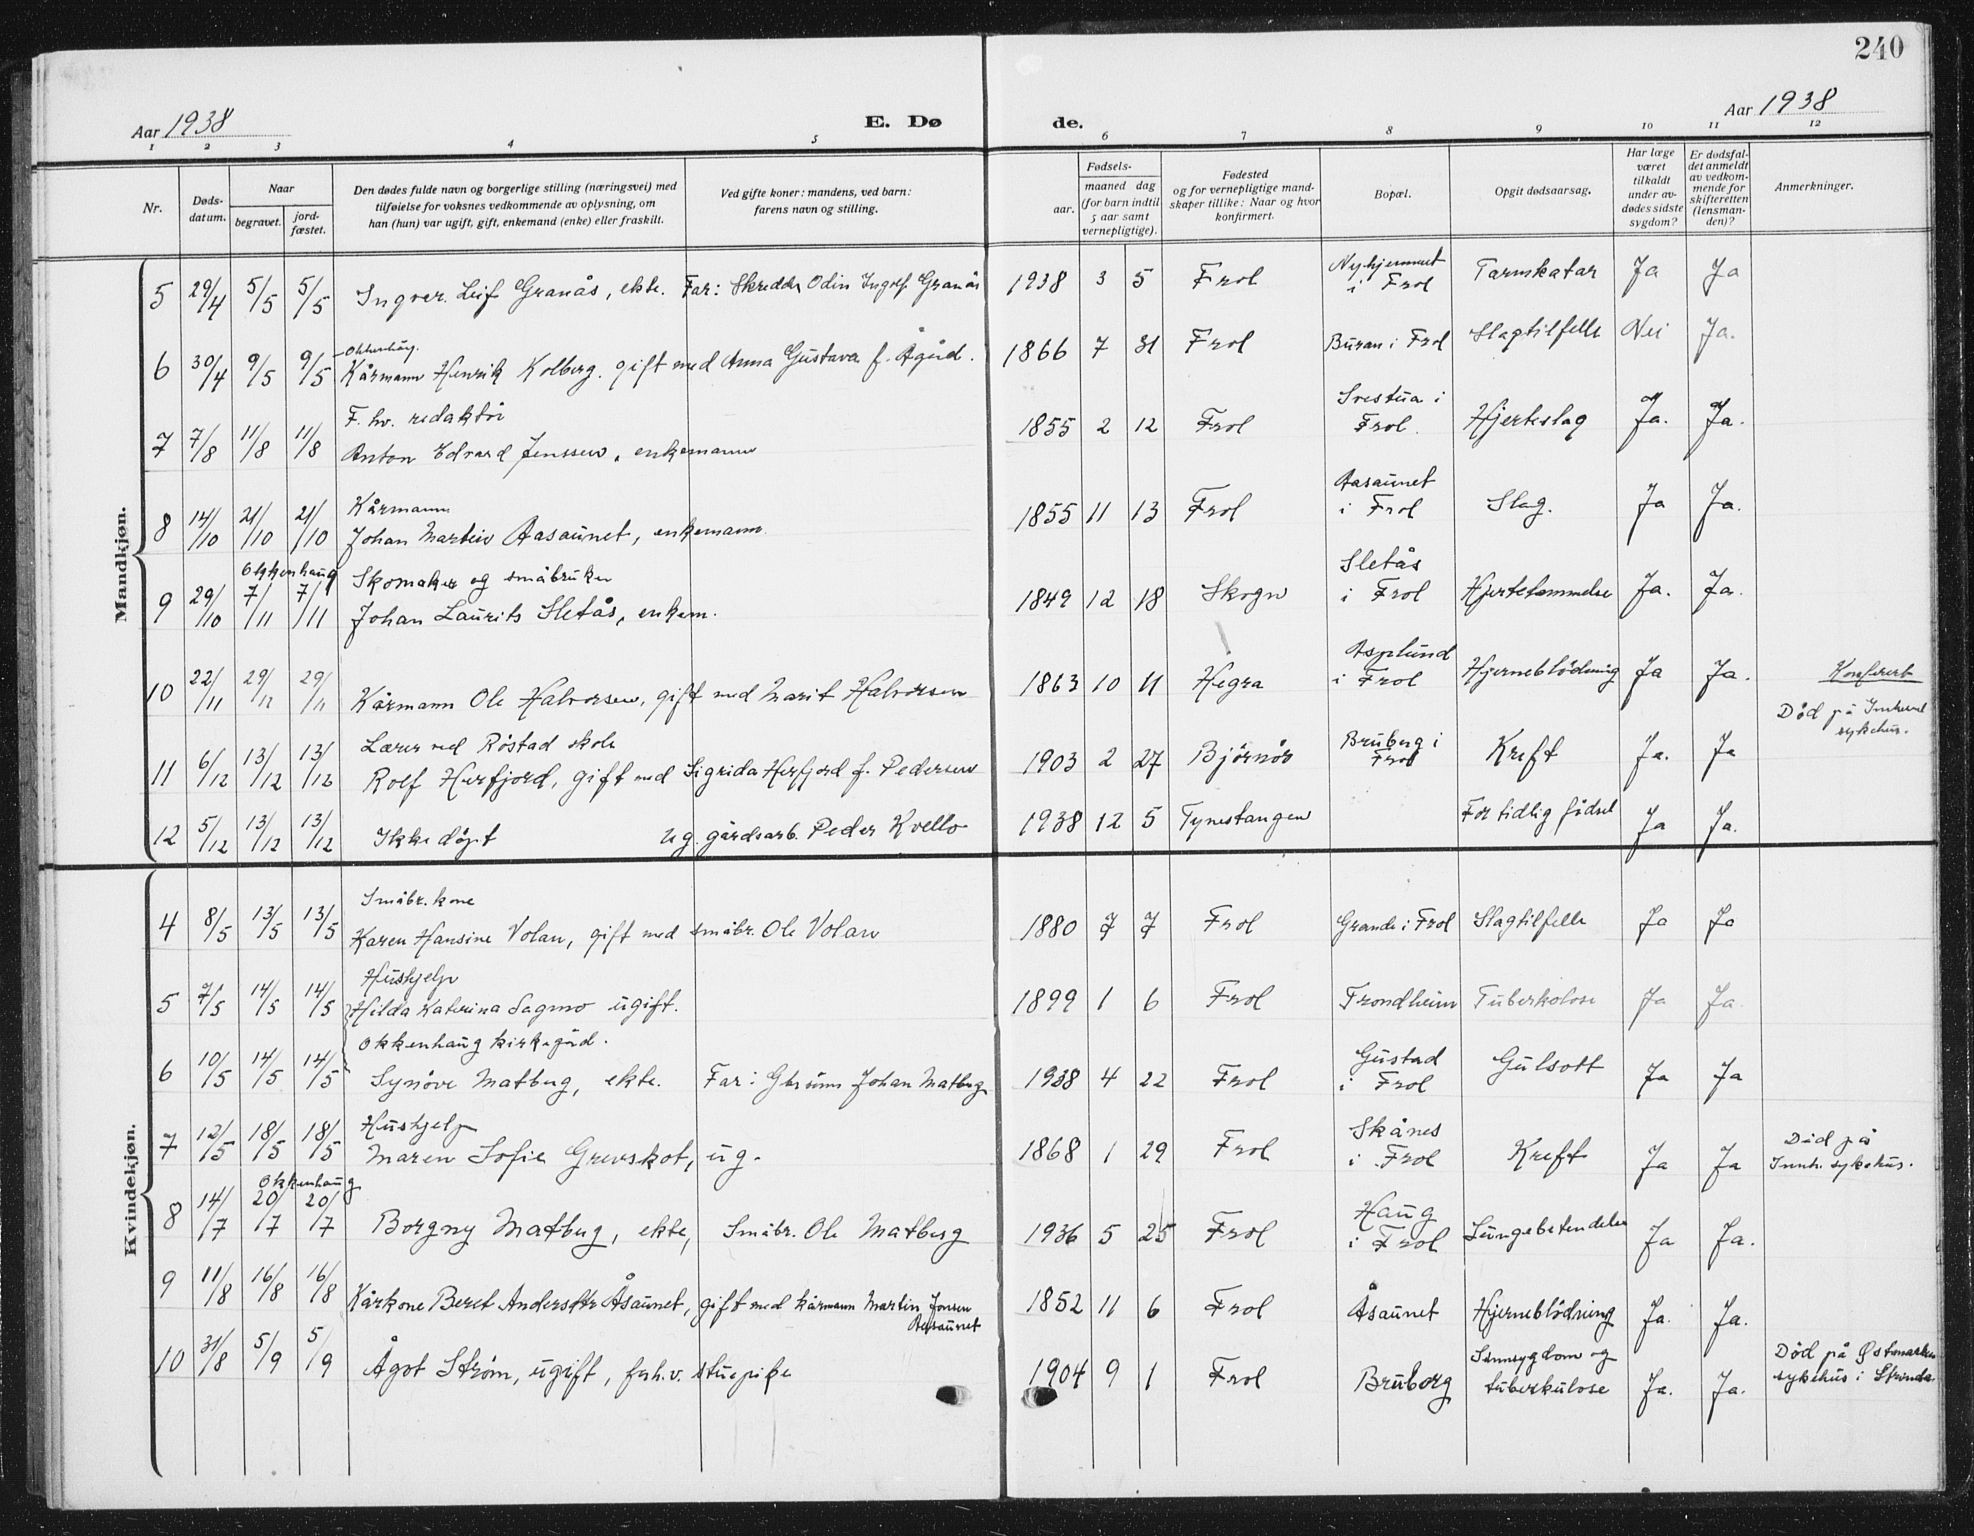 240
Aar 1938
E. Dø
de.
Aar 1938
1 2 3 4 5 6 7 8 9 10 11 12
Nr.
Døds-
datum.
Naar
begravet.
jord-
fæstet.
Den dødes fulde navn og borgerlige stilling (næringsvei) med
tilføielse for voksnes vedkommende av oplysning, om
han (hun) var ugift, gift, enkemand (enke) eller fraskilt.
Ved gifte koner: mandens, ved barn:
farens navn og stilling.
Fødsels-
aar.
maaned dag
(for barn indtil
5 aar samt
vernepligtige).
Fødested
og for vernepligtige mand-
skaper tillike: Naar og hvor
konfirmert.
Bopæl.
Opgit dødsaarsag.
Har læge
været
tilkaldt
under av-
dødes sidste
sygdom?
Er dødsfal-
det anmeldt
av vedkom-
mende for
skifteretten
(lensman-
den)?
Anmerkninger.
Mandkjøn.
5 29/4 5/5 5/5 Ingvar Leif Granås, ekte. Far: Skredder Odin Ingolf Granås 1938 3 5 Frol Nyhjemmet i Frol Tarmkatar Ja Ja
Okkenhaug.
6 30/4 9/5 9/5 Kårmann Henrik Kolberg. gift med Anna Gustava f. Ågård. 1866 7 31 Frol Buran i Frol Slagtilfelle Nei Ja.
F. hv. redaktør
7 7/8 11/8 11/8 Anton Edvard Jenssen, enkemann 1855 2 12 Frol i Frol. Hjerteslag Ja. Ja.
Kårmann
8 14/10 21/10 21/10 Johan Martin Aasaunet, enkemann. 1855 11 13 Frol Aasaunet i Frol Slag. Ja Ja.
Okkenhaug
Skomaker og småbruker
9 29/10 7/11 7/11 Johan Laurits Sletås, enkem. 1849 12 18 Skogn Sletås i Frol Hjertelammelse Ja. Ja.
10 22/11 29/11 29/11 Kårmann Ole Halvorsen, gift med Marit Halvorsen 1863 10 11 Hegra Asplund i Frol Hjerneblødning Ja Ja. Konferert
Lærer ved Røstad skole
11 6/12 13/12 13/12 Rolf Herfjord, gift med Sigrida Herfjord f. Pedersen 1903 2 27 Bjørnør Bruberg i Frol Kreft Ja. Ja Død på Innherred sykehus.
12 5/12 13/12 13/12 Ikke døpt ug. gårdsarb. Peder Kvello 1938 12 5 Tynestangen For tidlig fødsel Ja Ja.
Kvindekjøn.
Småbr. kone
4 8/5 13/5 13/5 Karen Hansine Volan, gift med småbr. Ole Volan 1880 7 7 Frol Grande i Frol Slagtilfelle Ja Ja
Hushjelp
5 7/5 14/5 14/5 Hilda Katerina Sagmo ugift. 1899 1 6 Frol Trondheim Tuberkolose Ja Ja.
Okkenhaug kirkegård.
6 10/5 14/5 14/5 Synøve Matberg, ekte. Far: Johan Matberg 1938 4 22 Frol Gustad i Frol Gulsott Ja Ja
Hushjelp
7 12/5 18/5 18/5 Maren Sofie Grevskot, ug. 1868 1 29 Frol Skånes i Frol Kreft Ja Ja Død på Innh. sykehus.
Okkenhaug
8 14/7 20/7 20/7 Borgny Matberg, ekte, Småbr. Ole Matberg 1936 5 25 Frol Haug i Frol Lungebetendelse Ja Ja.
9 11/8 16/8 16/8 Kårkone Beret Andersdtr Åsaunet, gift med kårmann Martin Jonsen Aasaunet 1852 11 6 Frol Åsaunet Hjerneblødning Ja. Ja.
10 31/8 5/9 5/9 Ågot Strøm, ugift, forh.v. stuepike 1904 9 1 Frol Bruborg Sinnsygdom og tuberkulose Ja. Ja. Død på Østmarken sykehus i Strinda.